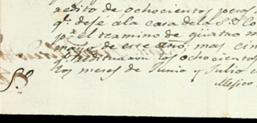 redito de ochocientos pesos
qe. dejé a la casa de la Sª. Co
pr. el termino de quatro m
mayo de este año; mas cin
los ochocientos
los meses de Junio y Julio d
Mexico